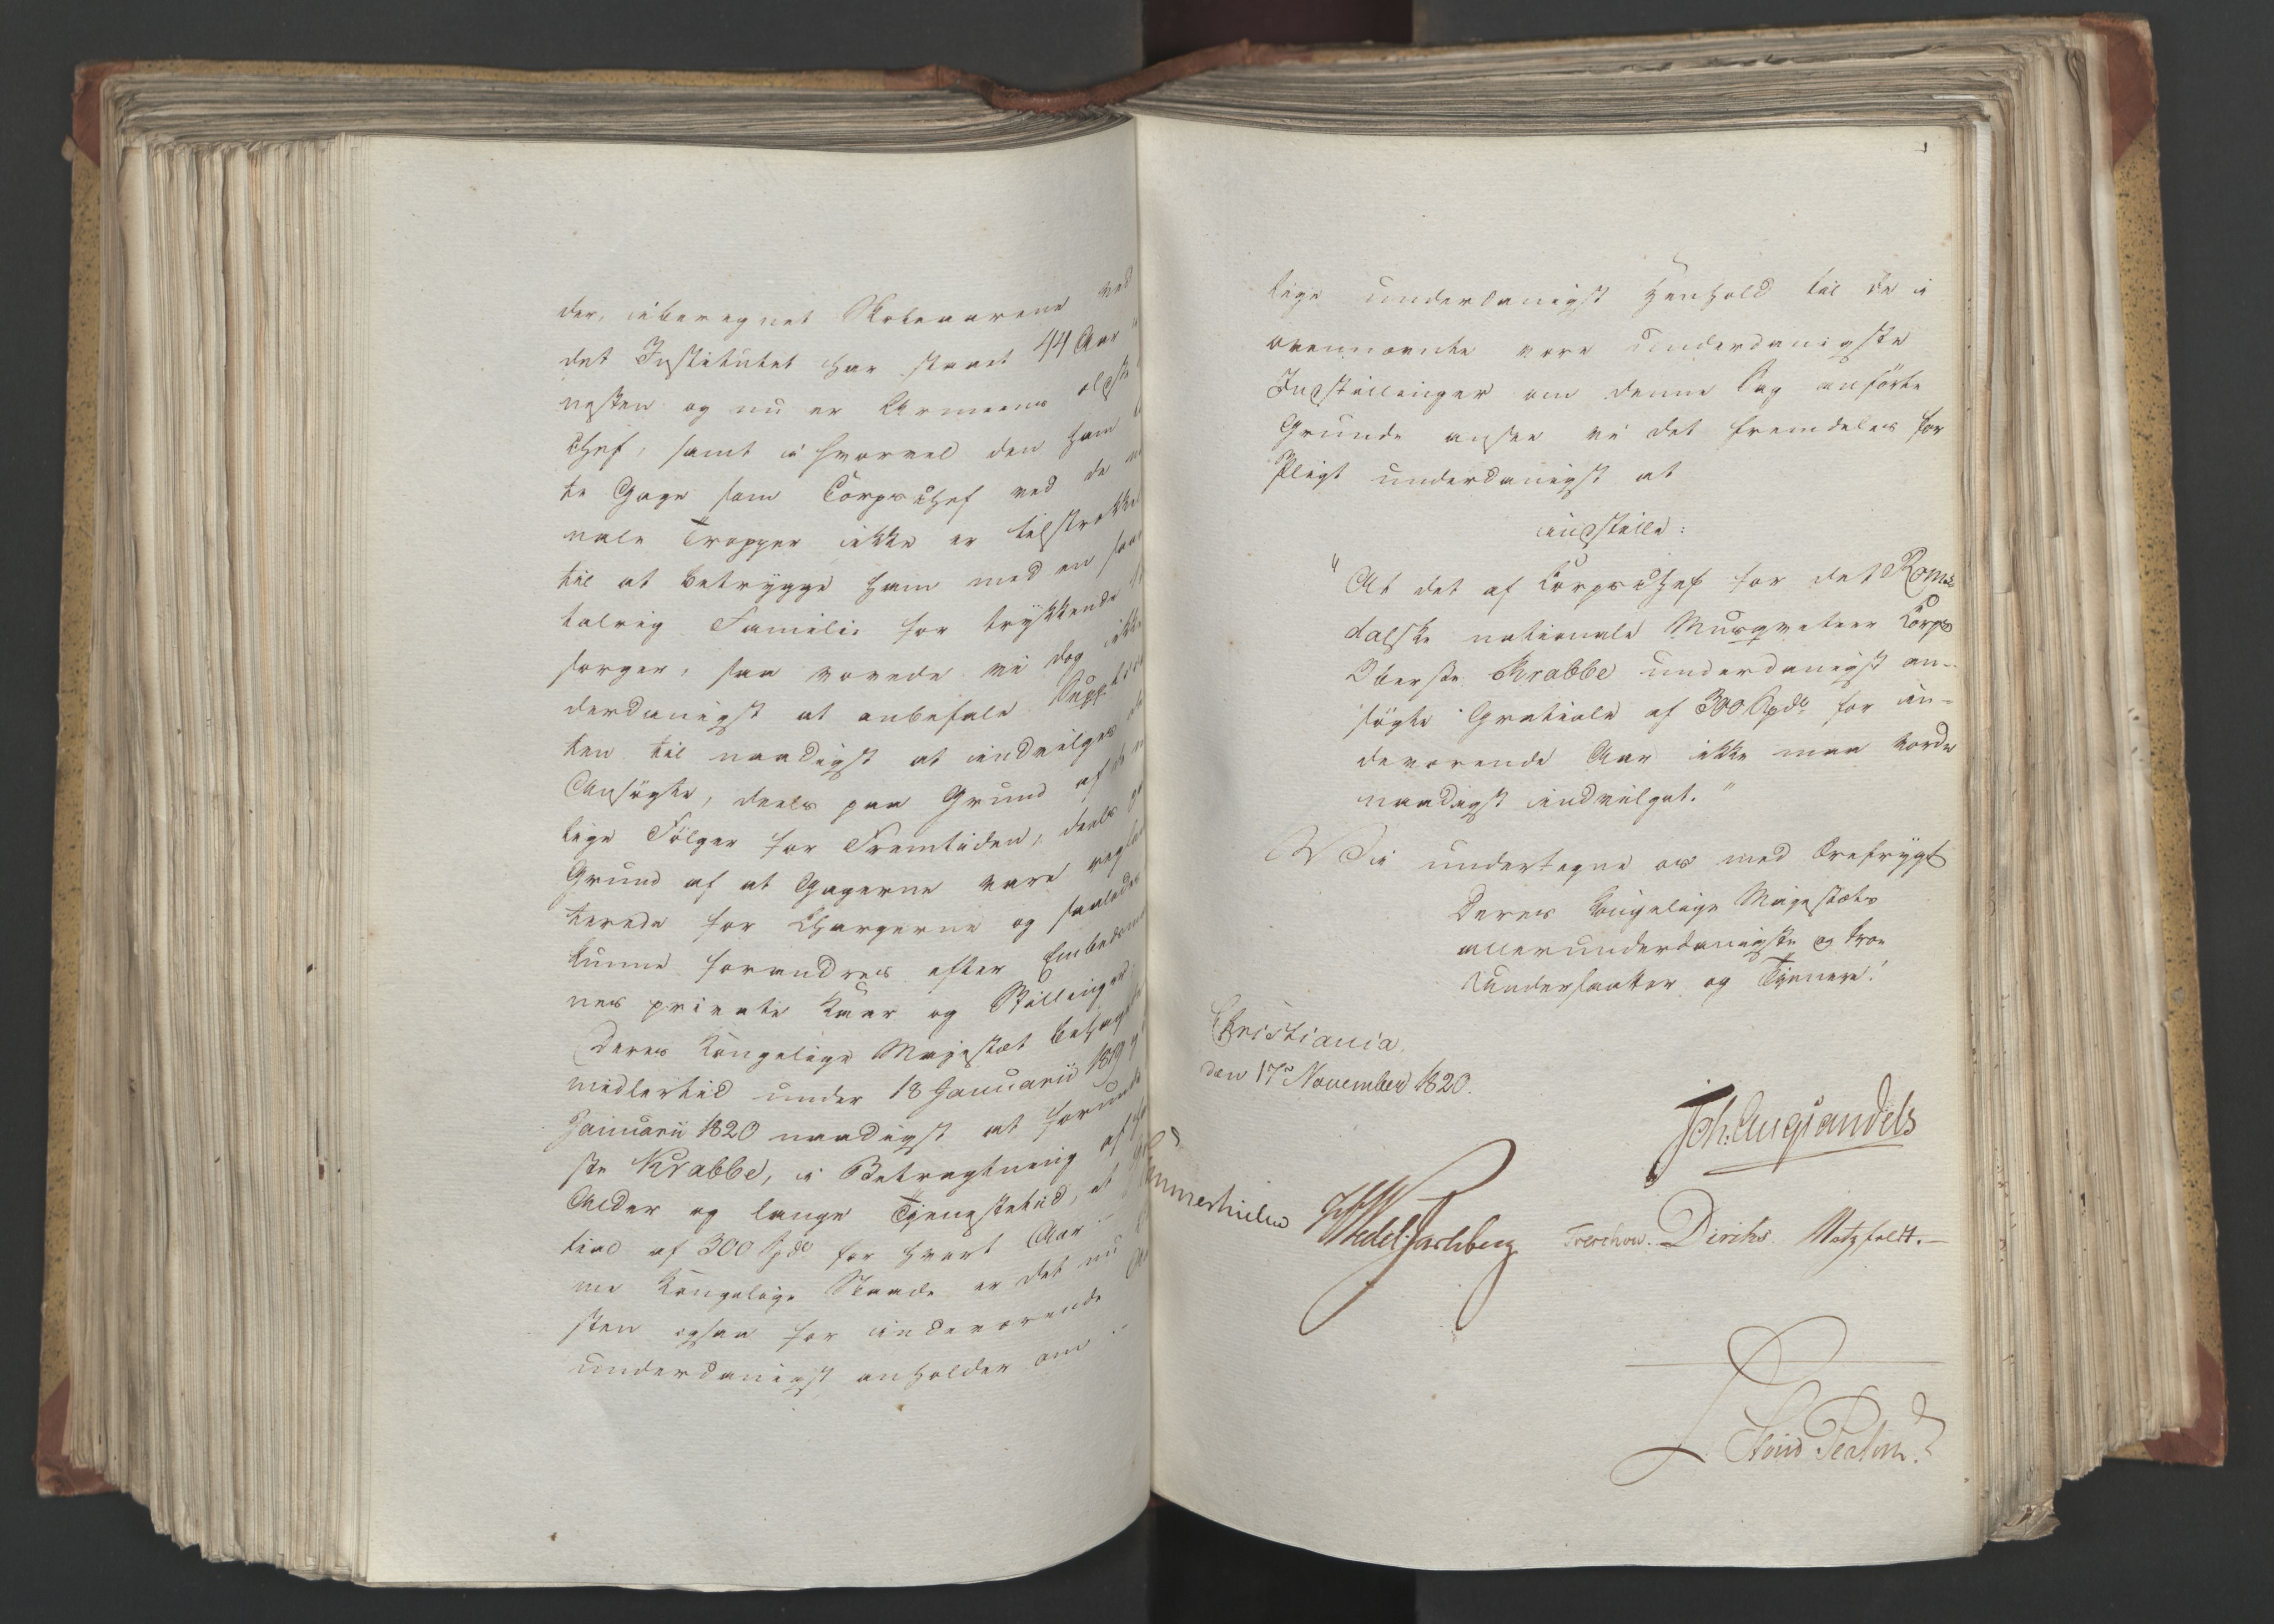 der, iberegnet Skoleaarene ved
det Institutet har staaet 44 Aar i
nesten og nu er Armeens ælste
Chef, samt i hvorvel den ham
te Gage som Corpschef ved de
nale Tropper ikke er tilstrække
til at betrygge ham med en saa
talrig Familie for trykkende
sorger, saa vovede vi dog ikke
derdanigst at anbefale Suppli
ten til naadigst at indvilges
Ansøgte, deels paa Grund af
lige Følger for Fremtiden, deels
Grund af at Gagerne vare regle
terede for Chargerne og saaledes
kunne forandres efter Embedsmæn
nes private Kaar og Stillinger.
Deres Kongelige Majestæt behage
midlertid under 18 Januarii 1819
Januarii 1820 naadigst at forunde
ste Krabbe, i Betragtning af
Alder og lange Tjenestetid, et
tial af 300 Spd for hvert Aar
me Kongelige Naade er det nu
sten ogsaa for indeværende
underdanigst anholder om
lige underdanigst Henhold til de i
ovennævnte vore underdanigste
Indstillinger om denne Sag anførte
Grunde ansee vi det fremdeles for
Pligt underdanigst at
indstille:
"At det af Corpschef for det Roms
dalske nationale Musqveteer Corps
Oberste Krabbe underdanigst an-
søgte Gratiale af 300 Spd for in-
deværende Aar ikke maa vorde
naadigst indvilget."
Vi undertegne os med Ærefrygt
Deres Kongelige Majestæts
allerunderdanigste og troe
Undersaatter og Tjenere!
Christiania,
den 17de November 1820.
Joh. Aug Sandels
Sommerhielm HWedel Jarlsberg Treschow. Diriks Motzfeldt.